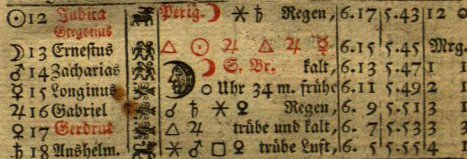 ☉ 12 Judica Perig. ☽ ⚹ ♄ Regen, 6.17 5.43 12
Gregorius
13 Ernestus △ ☉ ♃ △ ♃ ☿ 6.15 5.45 Mrg.
♂ 14 Zacharias ☽ S. Br. kalt, 6.13 5.47 1
☿ 15 Longinus 0 Uhr 34 m. frühe 6.11 5.49 2
♃ 16 Gabriel ☌ ♄ ⚹ ♀ Regen, 6. 9 5.51 3
♀ 17 Gerdrut △ ♃ trübe und kalt, 6. 7 5.53 3
♄ 18 Anshelm. ⚹ ♂ □ ☿ trübe Luft, 6. 5 5.55 4